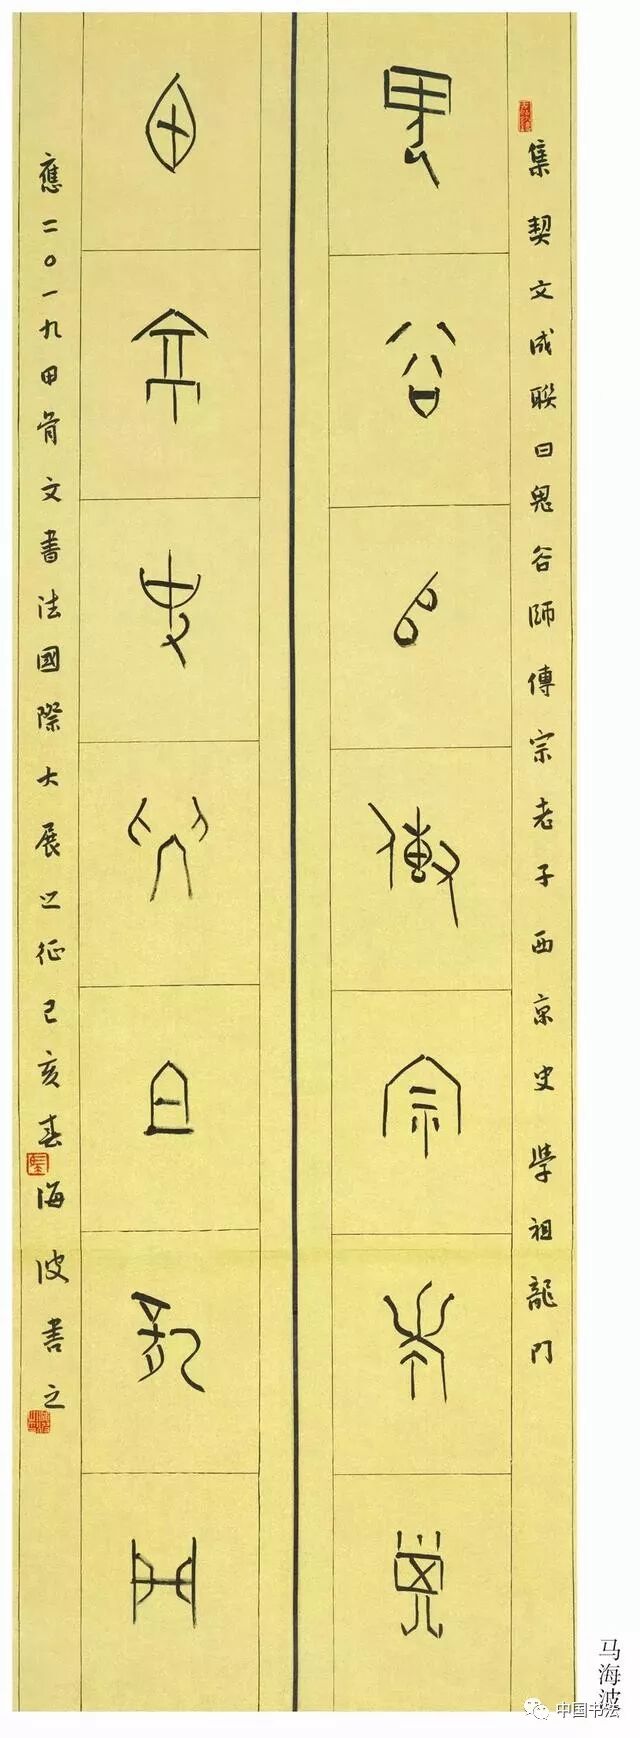 鬼谷師傳宗老子
西京史學祖龍門
集契文成聯曰鬼谷師傳宗老子西京史學祖龍門
應二〇一九甲骨文書法國際大展之征己亥春海波書之
马海波
中国书法